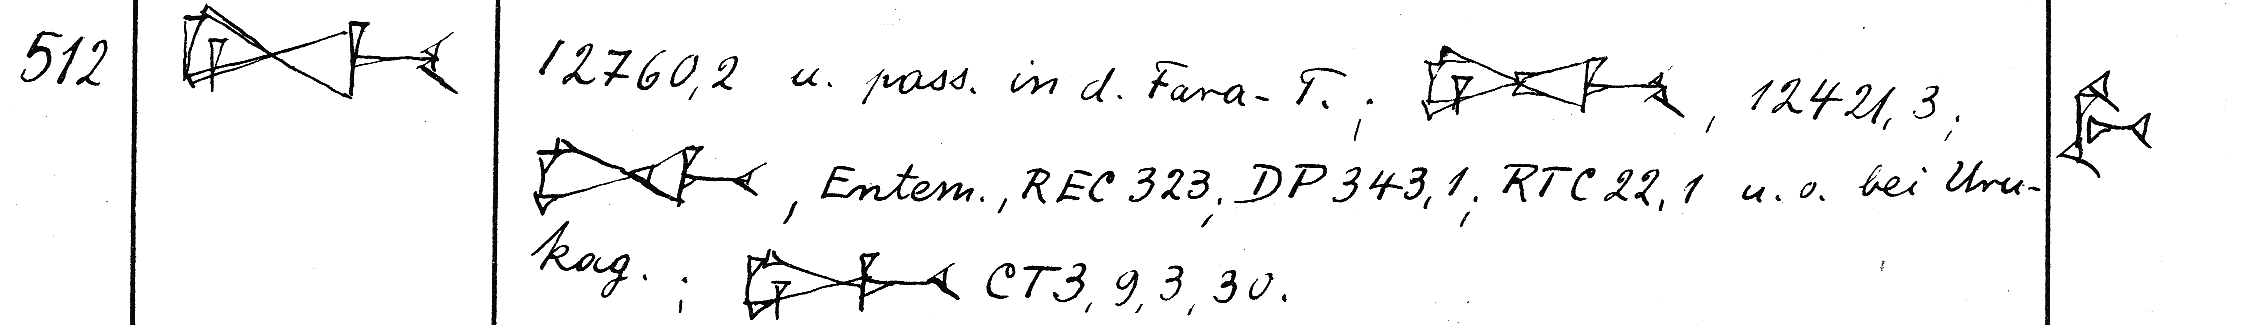 512 12760,2 u. pass. in d. Fara-T.; , 12421,3;
, Entem., REC 323; DP 343,1; RTC 22,1 u. o. bei Uru-
kag.; CT 3, 9, 3, 30.